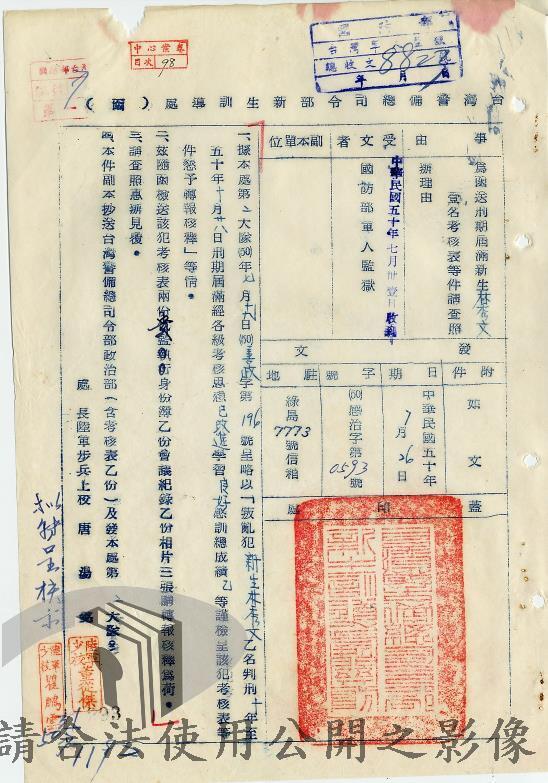 中心檔卷
目次 98
總收文 882 號
年 月 日
台灣警備總司令部新生訓導處(函)
事由
為函送刑期屆滿新生林秀文壹名考核表等件請查照辦理由
副本單位
受文者
國防部軍人監獄
中華民國五十年七月廿壹日收到
發文
附件
如文
日期
中華民國五十年7月26日
字號
(50)感治字第0593號
駐地
綠島7773號信箱
蓋印處
一、據本處第二大隊(50)年七月十九日(50)美政字第196號呈略以「叛亂犯新生林秀文乙名判刑十年至
五十年十月廿八日刑期屆滿經各級考核思想已改進學習良好感訓總成績乙等謹檢呈該犯考核表等
件懇予轉報核釋」等情。
二、茲隨函檢送該犯考核表兩份執行身份簿乙份會議紀錄乙份相片三張請轉報核釋為荷。
三、請查照惠辦見覆。
四、本件副本抄送台灣警備總司令部政治部(含考核表乙份)及發本處第二大隊
處長陸軍步兵上校唐湯銘
請合法使用公開之影像